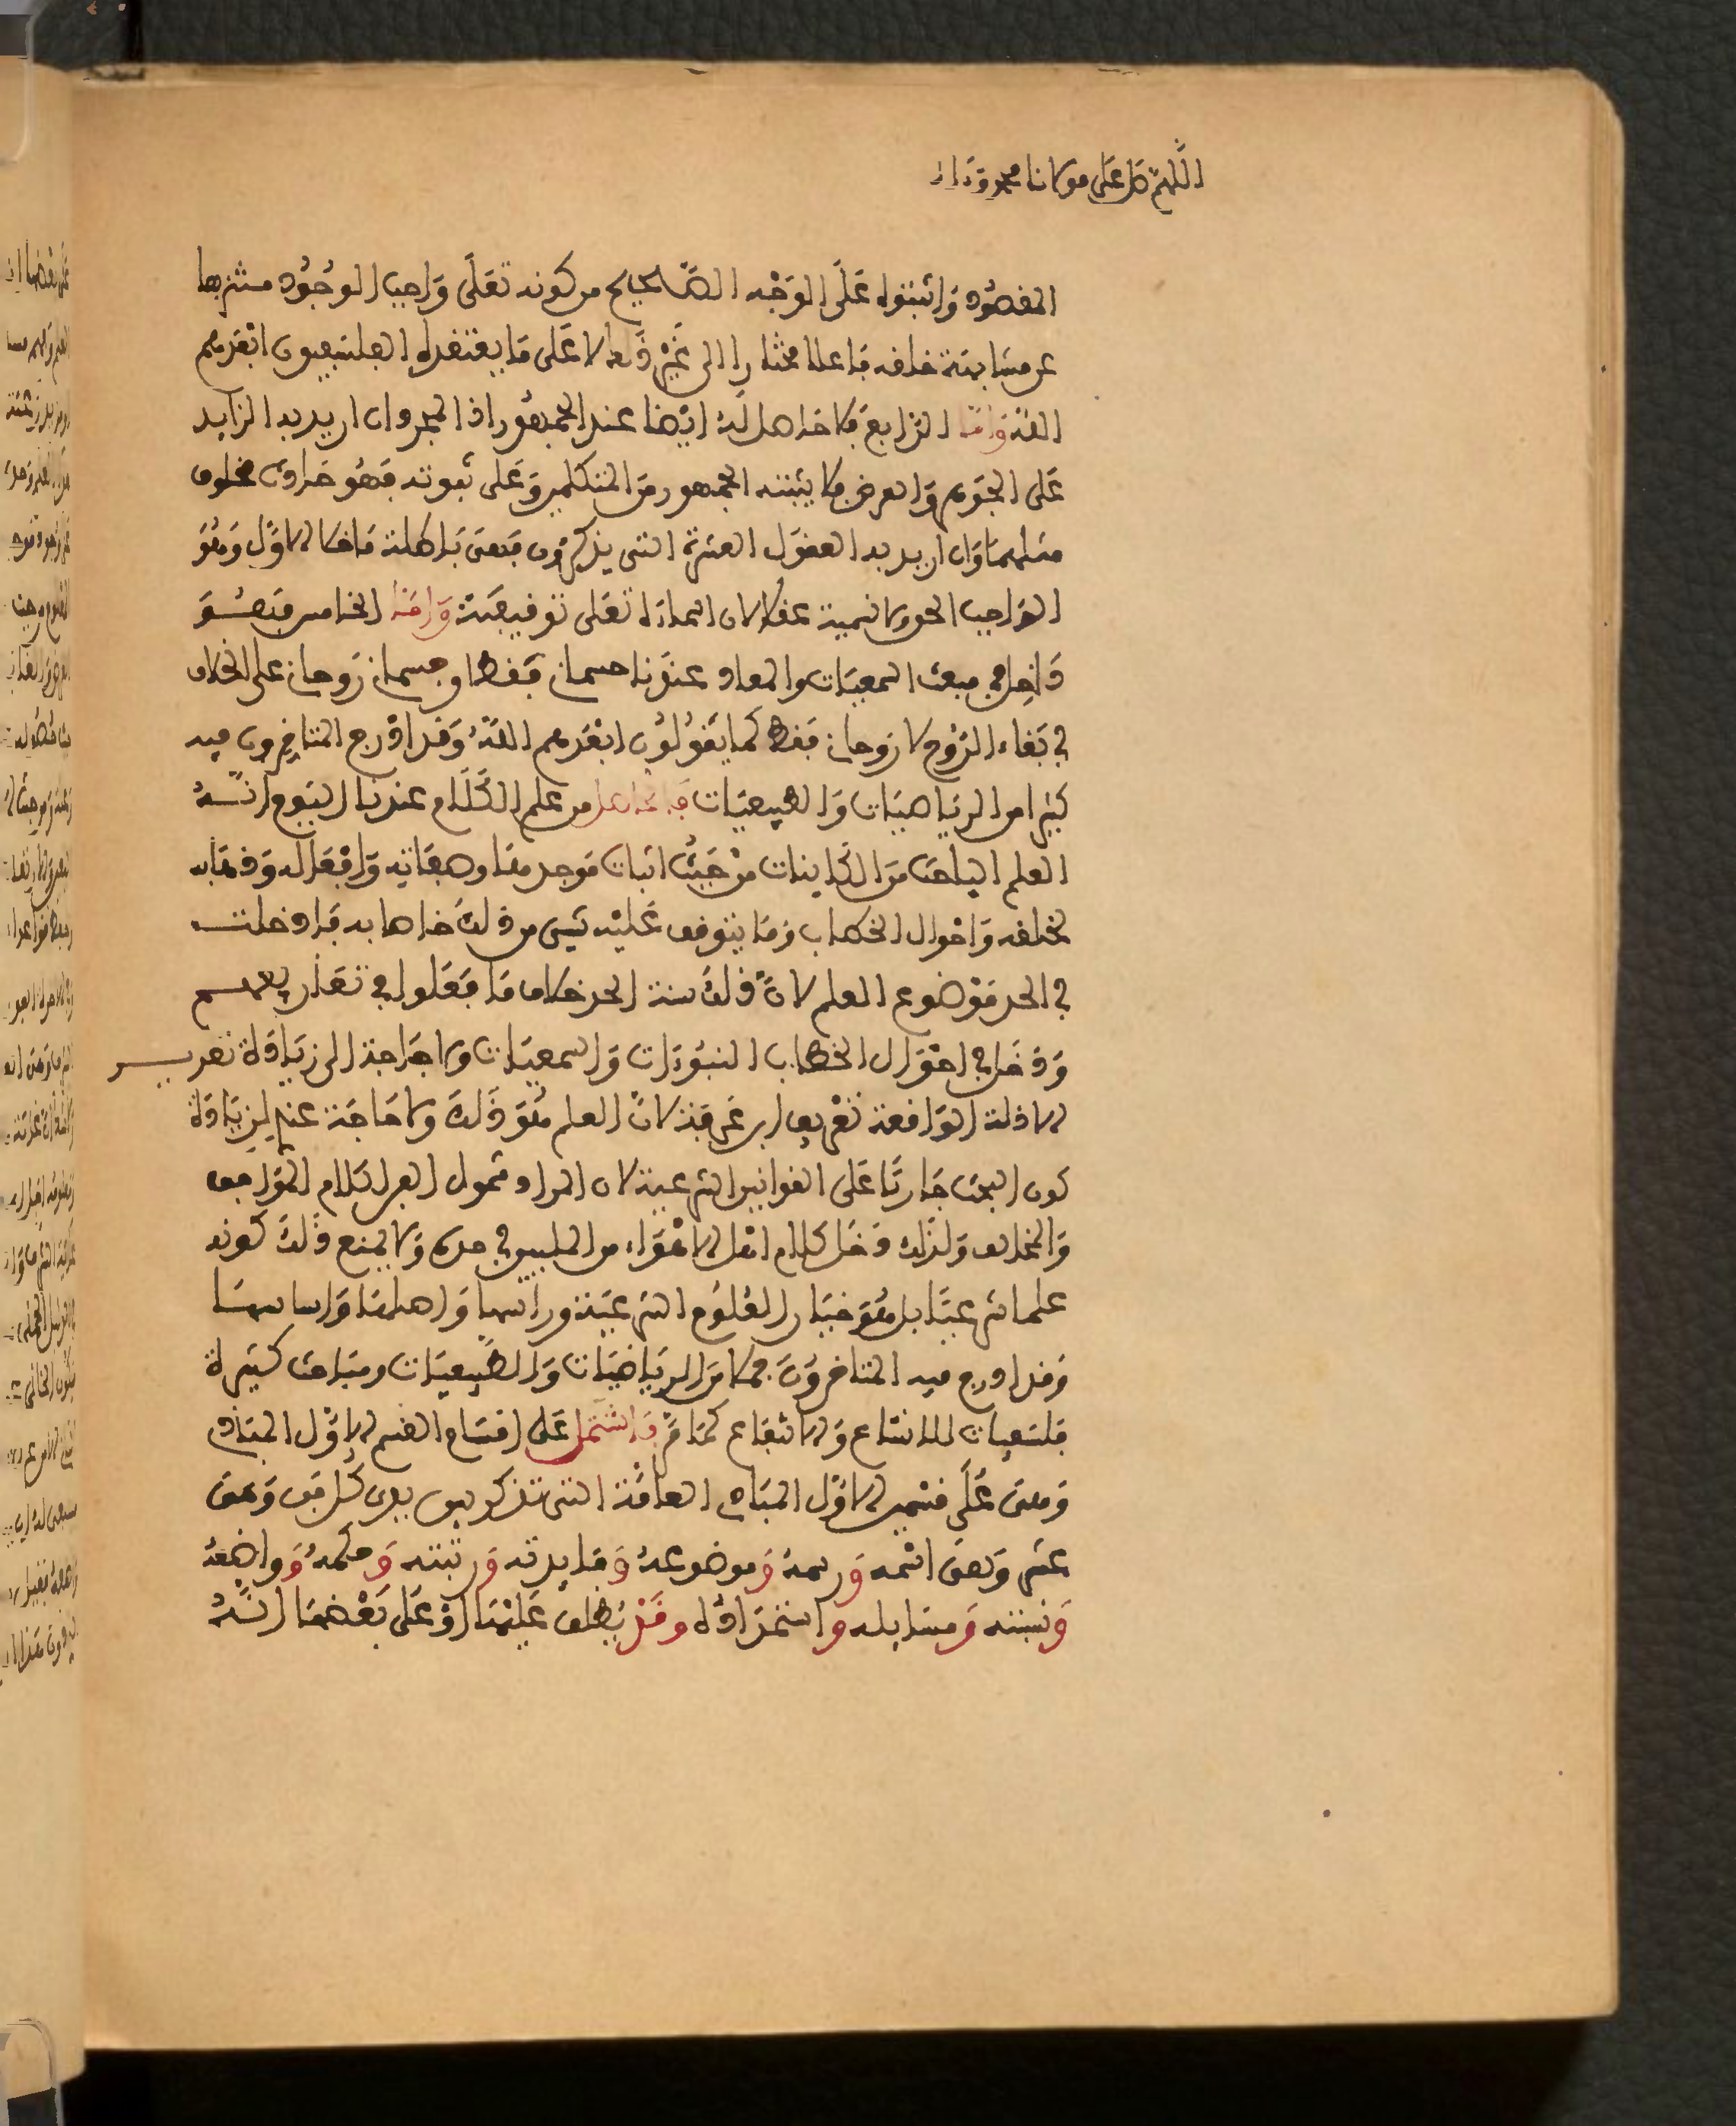 اللهم صل على مولانا محمد وءاله
المقصود واثبتوه على الوجه الصحيح من كونه تعلى واجب الوجود منزها
عن مشابهة خلقه فاعلا مختارا الى غير ذلك لا على ما يعتقده الفلسفيون ابعدهم
الله واما الرابع فلا حاصل له ايضا عند الجمهور اذ المجرد ان اريد به الزايد
على الجوهر والعرض فلا يثبته الجمهور من المتكلمين وعلى ثبوته فهو حادث مخلوق
مثلهما وان اريد به العقول العشرة التى يذكرون فهى باطلة ما خلا الاول وهو
الواجب الحق ولا نسميه عقلا لان اسماءه تعلى توقيفية واما الخامس فهو
داخل فى مبحث السمعيات والمعاد عندنا جسمانى فقط او جسمانى روحانى على الخلاف
فى بقاء الروح لا روحانى فقط كما يقولون ابعدهم الله وقد ادرج المتاخرون فيه
كثيرا من الرياضيات والطبيعيات فالحاصل من علم الكلام عندنا اليوم انه
العلم الباحث من الكاينات من حيث اثبات موجدها وصفاته وافعاله وخطابه
لخلقه واحوال الخطاب وما يتوقف عليه شىء من ذلك خاصا به فادخلت
فى الحد موضوع العلم لان ذلك سنة الحد خلاف ما فعلوا فى تعاريفهم
ودخل فى احوال الخطاب النبوءات والسمعيات ولا حاجة الى زيادة تعريف
الادلة الواقعة تعريف ابن عرفة لان العلم هو ذلك ولا حاجة عندى لزيادة
كون البحث جاريا على القوانين الشرعية لان المراد شمول الحد الكلام الموافق
والمخالف ولذلك دخل كلام اهل الاهواء من المليين فى حده ولا يمنع ذلك كونه
علما شرعيا بل هو خيار العلوم الشرعية وراسها واصلها واساسها
وقد ادرج فيه المتاخرون جملا من الرياضيات والطبيعيات ومباحث كثيرة
فلسفيات للاتساع والانتفاع كما مر واشتمل على اقسام القسم الاول المبادى
وهى على قسمين الاول المبادى العامة التى تذكر بين يدى كل فن وهى
عشر وهى اسمه ورسمه وموضوعه وفايدته ورتبته وحكمه وواضعه
ونسبته ومسايله واستمداده وقد يطلق عليها او على بعضها انه